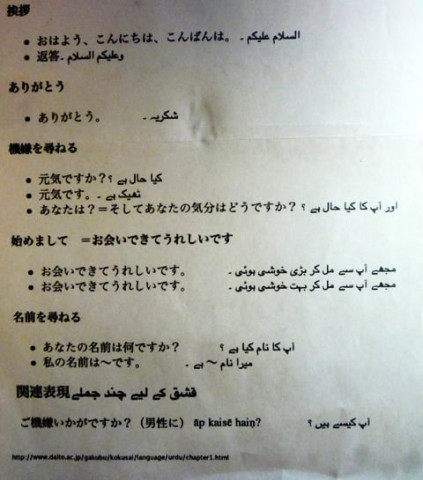 挨拶
おはよう、こんにちは、こんばんは。 السلام علیکم ۔
返答 ۔ وعلیکم السلام
ありがとう
ありがとう。 شکریہ ۔
機嫌を尋ねる
元気ですか? کیا حال ہے ؟
元気です。 ٹھیک ہے ۔
あなたは?=そしてあなたの気分はどうですか? اور آپ کا کیا حال ہے ؟
始めまして =お会いできてうれしいです
お会いできてうれしいです。 مجھے آپ سے مل کر بڑی خوشی ہوئی ۔
お会いできてうれしいです。 مجھے آپ سے مل کر بہت خوشی ہوئی ۔
名前を尋ねる
あなたの名前は何ですか? آپ کا نام کیا ہے ؟
私の名前は~です。 میرا نام ~ ہے ۔
関連表現 کے لیے چند جملے
ご機嫌いかがですか?(男性に) āp kaisē haiṇ? آپ کیسے ہیں ؟
http://www.daito.ac.jp/gakubu/kokusai/language/urdu/chapter1.html